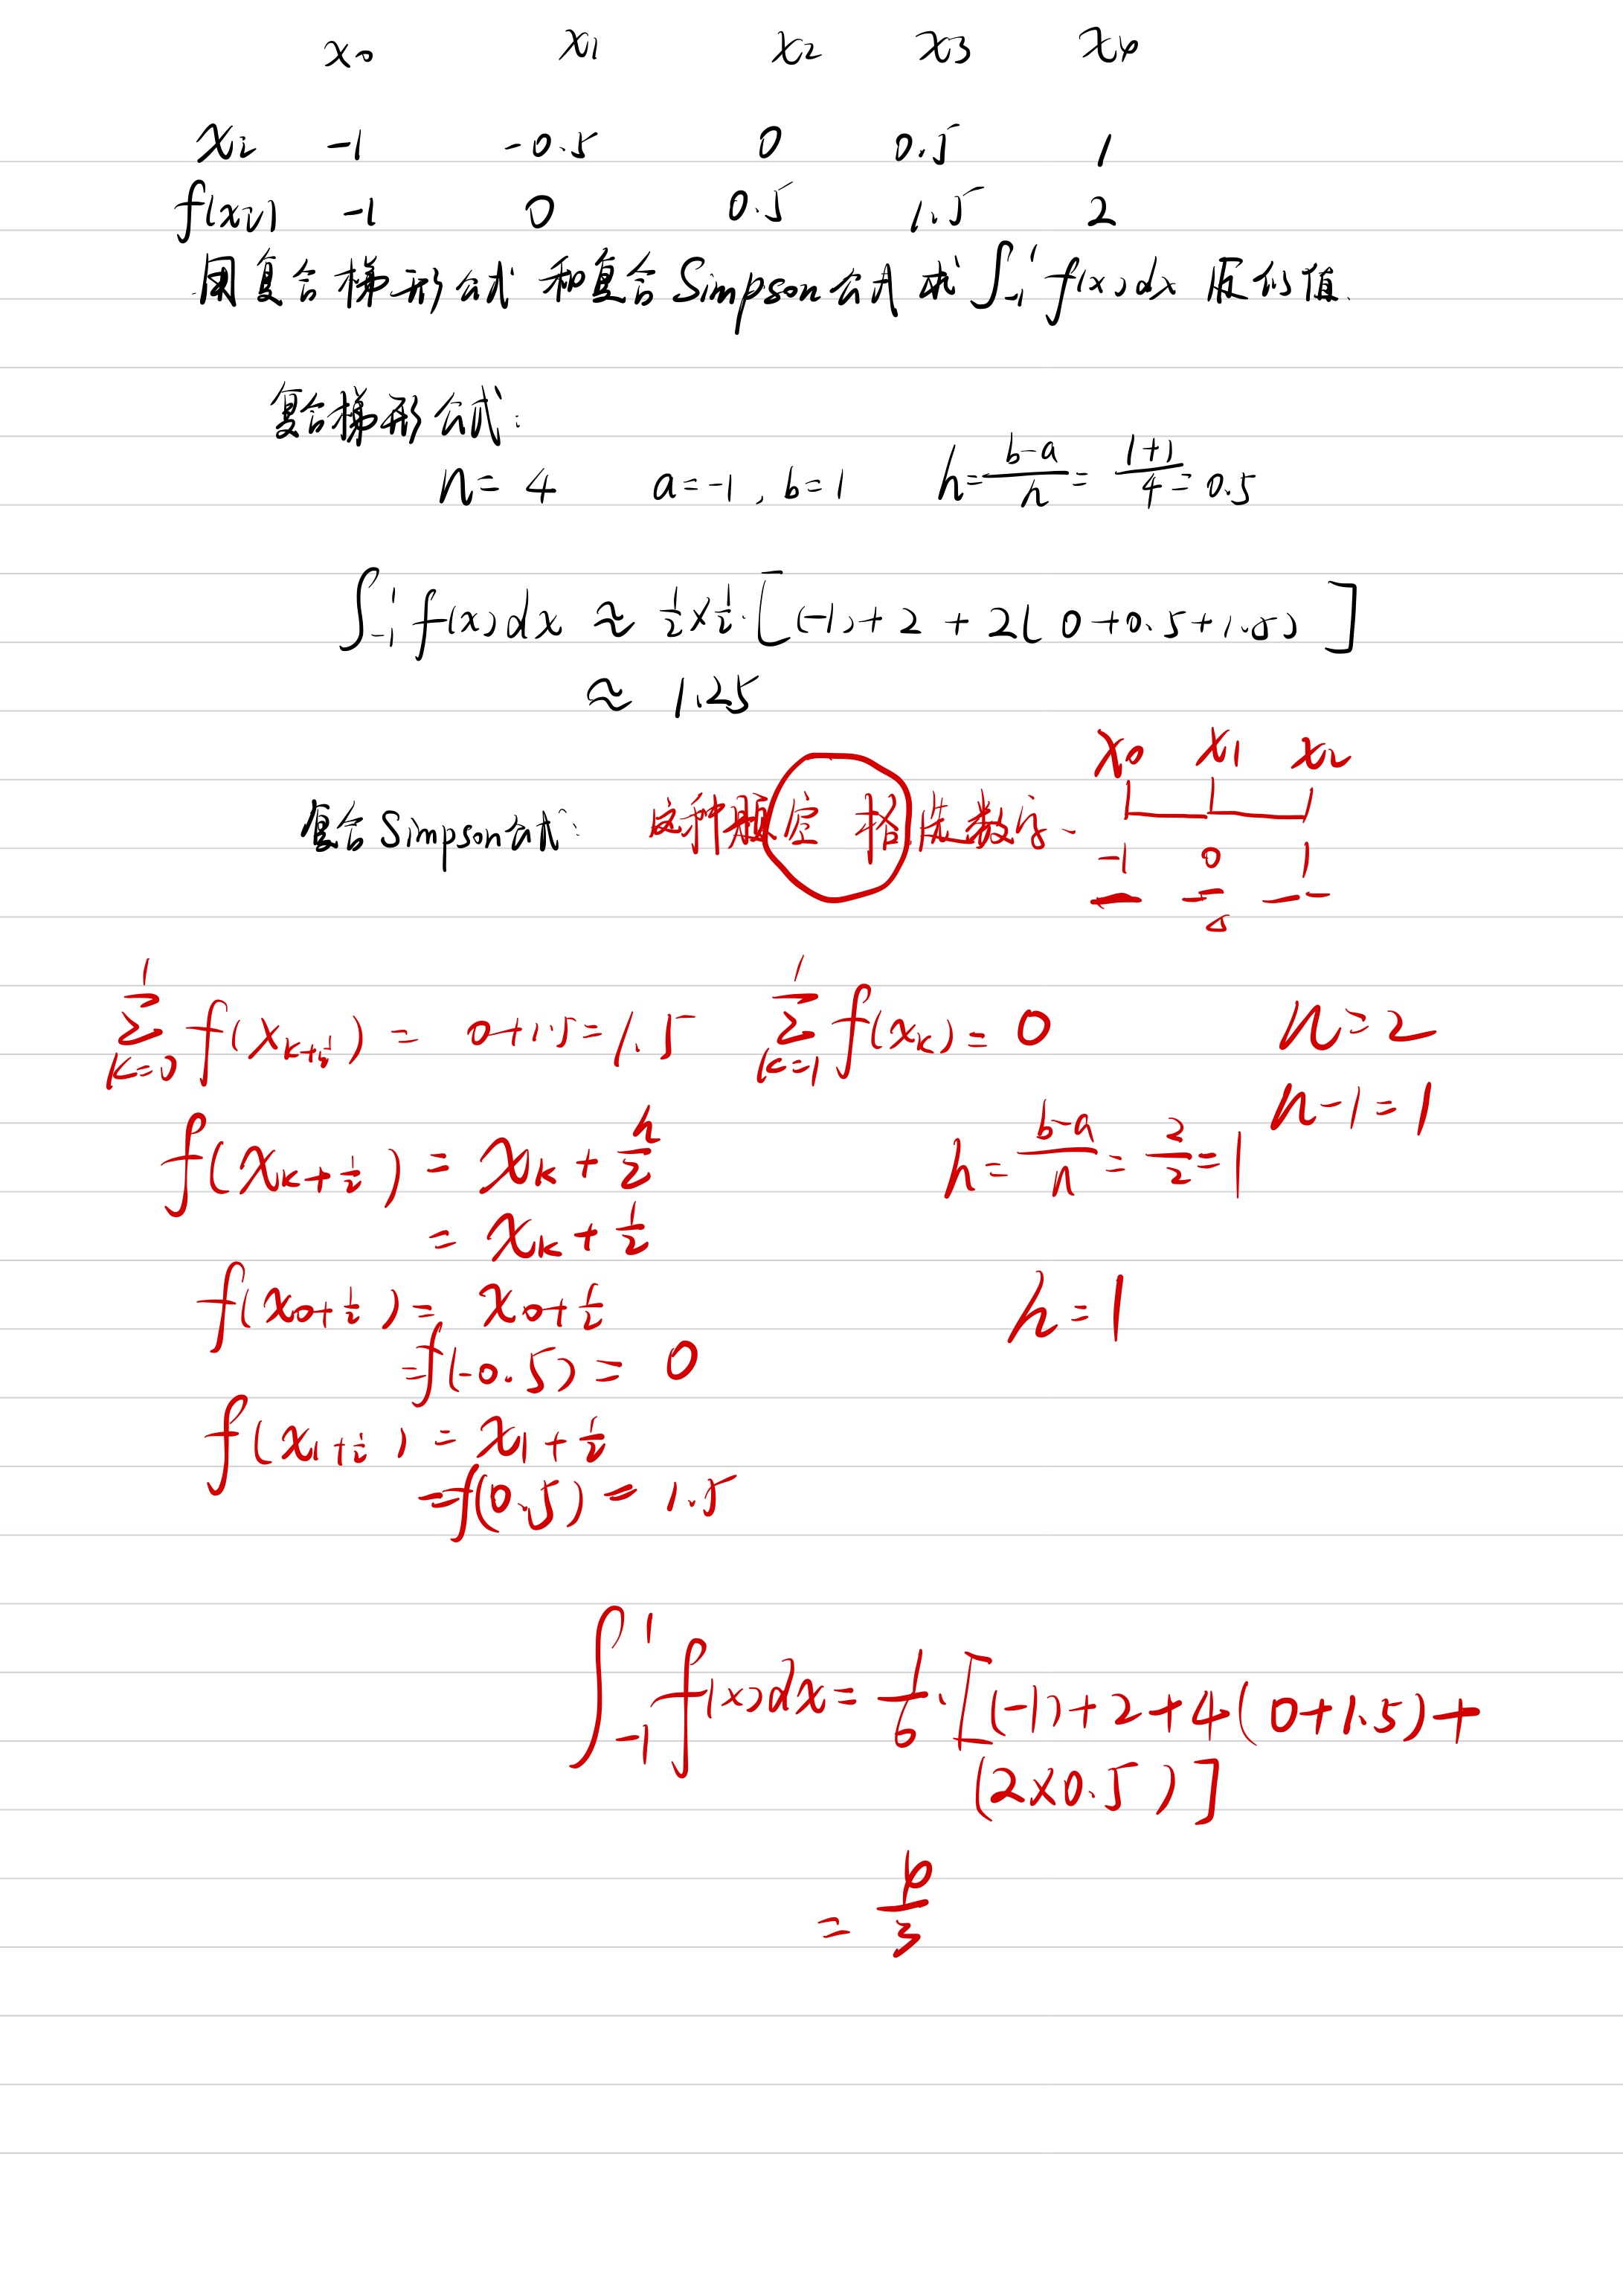 x₀ x₁ x₂ x₃ x₄
xᵢ -1 -0.5 0 0.5 1
f(xᵢ) -1 0 0.5 1.5 2
用复合梯形公式和复合Simpson公式求∫₋₁¹ f(x)dx 的近似值.
复合梯形公式:
n = 4 a = -1, b = 1 h = (b-a)/n = (1+1)/4 = 0.5
∫₋₁¹ f(x)dx ≈ 1/2 × 1/2 · [(-1) + 2 + 2(0 + 0.5 + 1.5)]
≈ 1.25
x₀ x₁ x₂
复合Simpson公式: 这种题空格先数
-1 0 1
∑ₖ₌₀¹ f(xₖ₊½) = 0+1.5 = 1.5 ∑ₖ₌₁¹ f(xₖ) = 0 n = 2
n-1 = 1
f(xₖ₊½) = xₖ + h/2 h = (b-a)/n = 2/2 = 1
= xₖ + 1/2
f(x₀₊½) = x₀ + 1/2 h = 1
= f(-0.5) = 0
f(x₁₊½) = x₁ + 1/2
= f(0.5) = 1.5
∫₋₁¹ f(x)dx = 1/6 · [(-1) + 2 + 4(0+1.5) +
(2×0.5)]